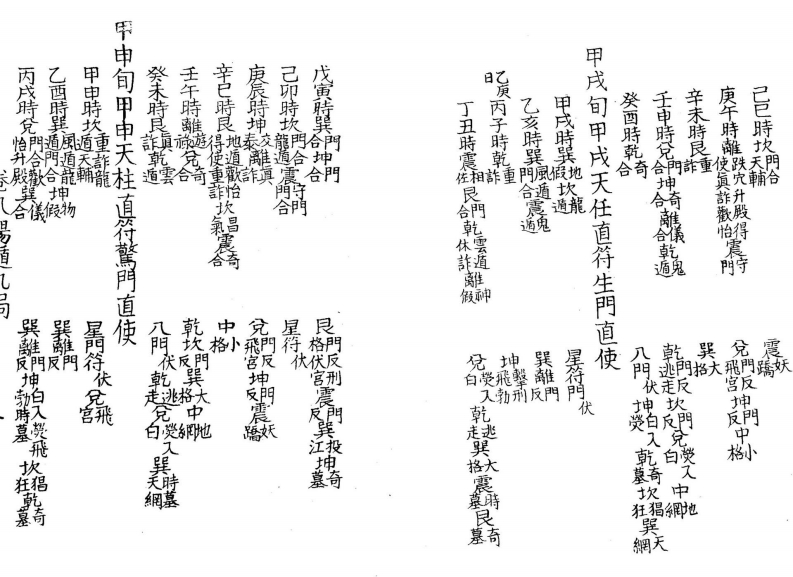 己巳時坎門合天輔　震妖蹻
庚午時離跌穴升殿得使真詐歡怡震守門　兌門反飛宮坤門反中小格
辛未時艮重詐　巽大格
壬申時兌門合坤奇合離儀合乾鬼遁　乾門反逃走坎門反兌熒入白中地網
癸酉時乾奇合　八門伏坤白入熒乾奇墓坎猖狂巽天網
甲戌旬甲戌天任直符生門直使
甲戌時巽地假坎龍遁　星符門伏
乙亥時巽風遁門合震鬼遁　巽門反離
乙庚日丙子時乾重詐　坤擊刑飛勃
丁丑時震相佐艮門合乾雲遁休詐離神假　兌熒入白乾逃走巽大格震時墓艮奇墓
戊寅時巽門合坤門合　艮門反刑格伏宮震門反巽投江坤奇墓
己卯時坎門合龍遁震守門門合　星符伏
庚辰時坤交泰離真詐　兌門反飛宮坤門反震妖蹻
辛巳時艮地遁歡怡得使重詐坎昌氣震奇合　中小格
壬午時離遊祿兌奇合　乾門反坎門反巽大格中地網
癸未時艮真詐乾雲遁　八門伏乾逃走兌熒入白巽時墓天網
甲申旬甲申天柱直符驚門直使
甲申時坎重詐龍遁天輔　星門符伏兌飛宮
乙酉時巽風遁龍遁門合坤物假　巽離門反
丙戌時兌門合歡怡升殿巽儀合　巽門反離門反坤白入熒勃飛時墓坎猖狂乾奇墓
陽遁九局